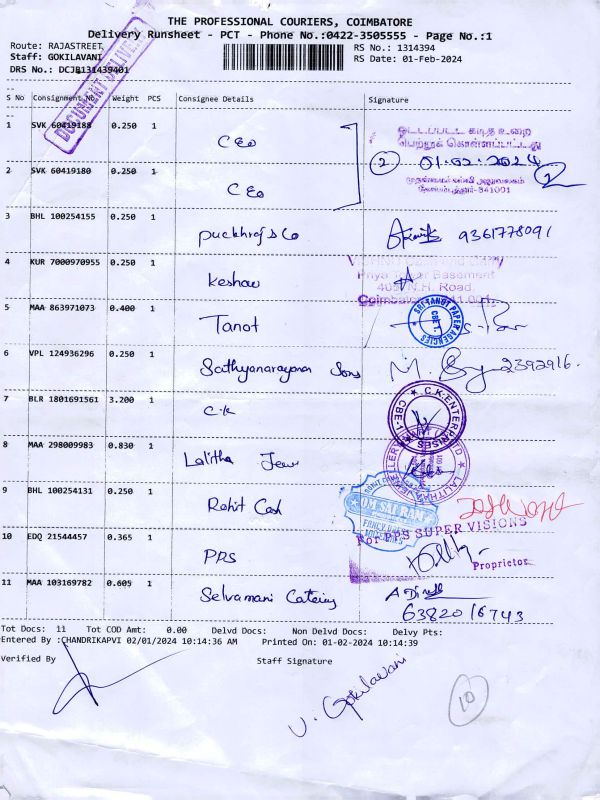 THE PROFESSIONAL COURIERS, COIMBATORE
Delivery Runsheet - PCT - Phone No.:0422-3505555 - Page No.:1
Route: RAJASTREET
Staff: GOKILAVANI
DRS No.: DCJB131439401
RS No.: 1314394
RS Date: 01-Feb-2024
DOCUMENT DELIVERY
S No Consignment No Weight PCS Consignee Details Signature
1 SVK 60419188 0.250 1 CEO
2 SVK 60419180 0.250 1 CEO
ஒட்டப்பட்ட கடித உறை
பெற்றுக் கொள்ளப்பட்டது
2 01.02.2024 2
முதன்மைக் கல்வி அலுவலகம்
கோயம்புத்தூர்-641001
3 BHL 100254155 0.250 1 9361778091
4 KUR 7000970955 0.250 1 Keshav
Priya Tower Basement
405, N.H. Road,
Coimbatore
5 MAA 863971073 0.400 1 Tanot
SRI TANOT PAPER AGENCIES
CBE-1.
6 VPL 124936296 0.250 1 Sathyanarayana Sons 2392916.
7 BLR 1801691561 3.200 1 C.K
C.K.ENTERPRISES
CBE-1
8 MAA 298009983 0.830 1 Lalitha Jew
LALITHA JEWELLERY
9 BHL 100254131 0.250 1 Rohit Cosh
OM SAI RAM
FANCY
10 EDQ 21544457 0.365 1 PPS
For PPS SUPER VISIONS
Proprietor
11 MAA 103169782 0.605 1 Selvamani Catering
6382016743
Tot Docs: 11 Tot COD Amt: 0.00 Delvd Docs: Non Delvd Docs: Delvy Pts:
Entered By :CHANDRIKAPVI 02/01/2024 10:14:36 AM Printed On: 01-02-2024 10:14:39
Verified By Staff Signature
V. Gokilavani
10